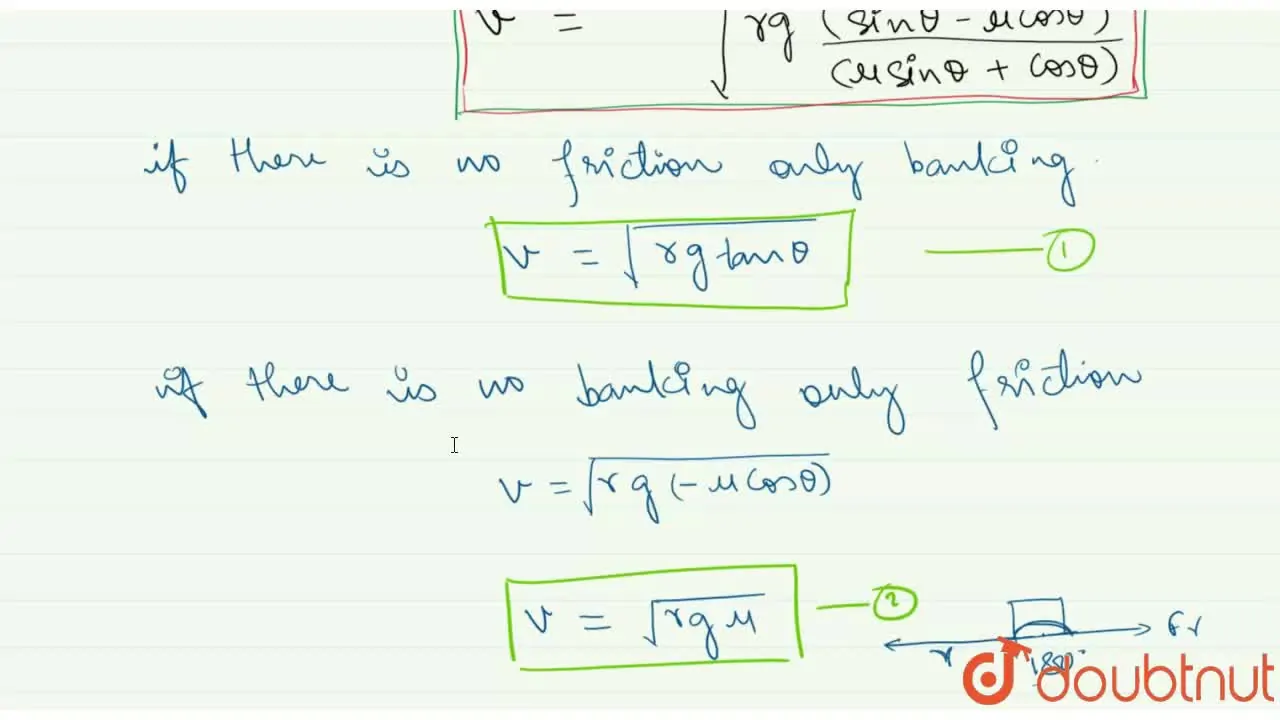 v = √rg (sinθ - μcosθ)
(μsinθ + cosθ)
if there is no friction only banking.
v = √rg tanθ ——— 1
if there is no banking only friction
v = √rg (-μcosθ)
v = √rgμ — 2
r 180° fr
doubtnut